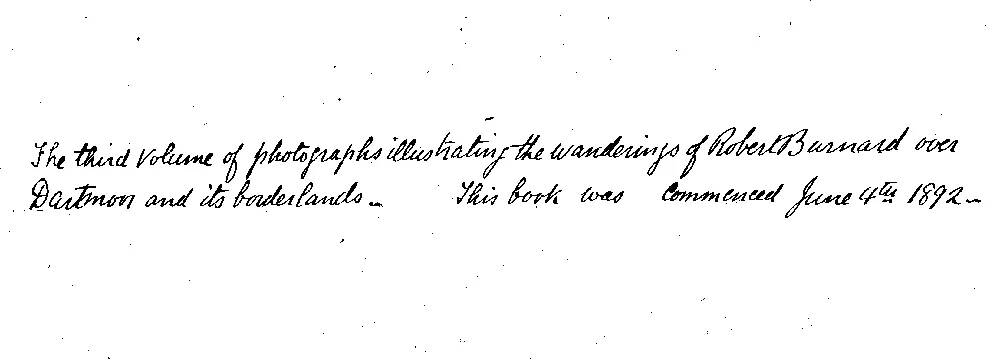 The third volume of photographs illustrating the wanderings of Robert Burnard over
Dartmoor and its borderlands – This book was commenced June 4th 1892 –